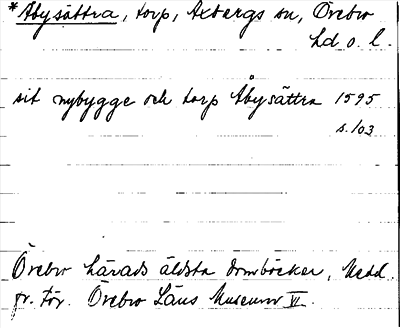 *Åbysättra, torp, Axbergs sn, Örebro
hd o. l.
sit nybygge och torp Åbysättra 1595
s. 103
Örebro härads äldsta domböcker, Medd.
fr. För. Örebro Läns Museum VI.